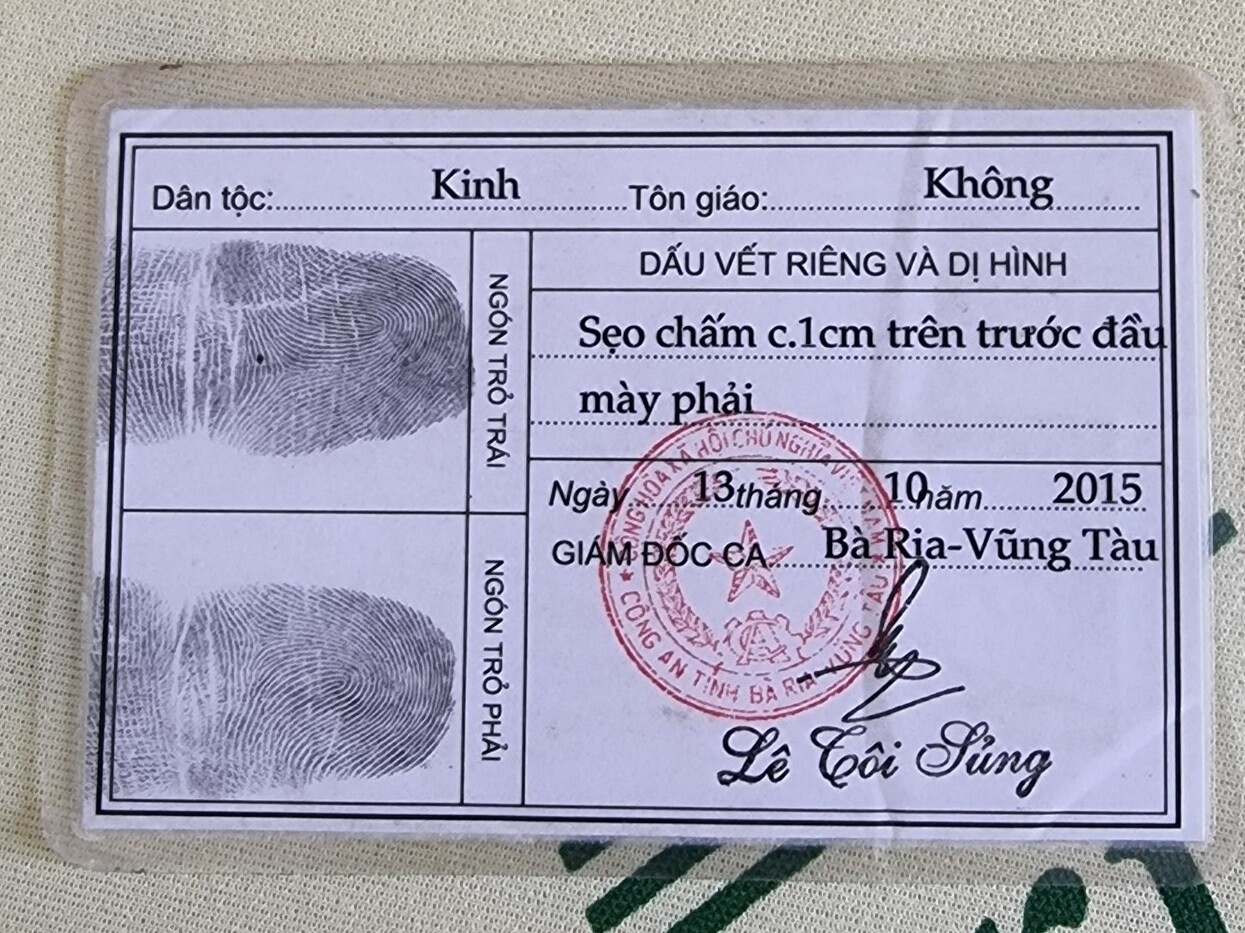 Dân tộc: Kinh Tôn giáo: Không
NGÓN TRỎ TRÁI
NGÓN TRỎ PHẢI
DẤU VẾT RIÊNG VÀ DỊ HÌNH
Sẹo chấm c.1cm trên trước đầu
mày phải
Ngày 13 tháng 10 năm 2015
GIÁM ĐỐC CA Bà Rịa-Vũng Tàu
CỘNG HÒA XÃ HỘI CHỦ NGHĨA VIỆT NAM
CÔNG AN TỈNH BÀ RỊA VŨNG TÀU
Lê Tôi Sủng